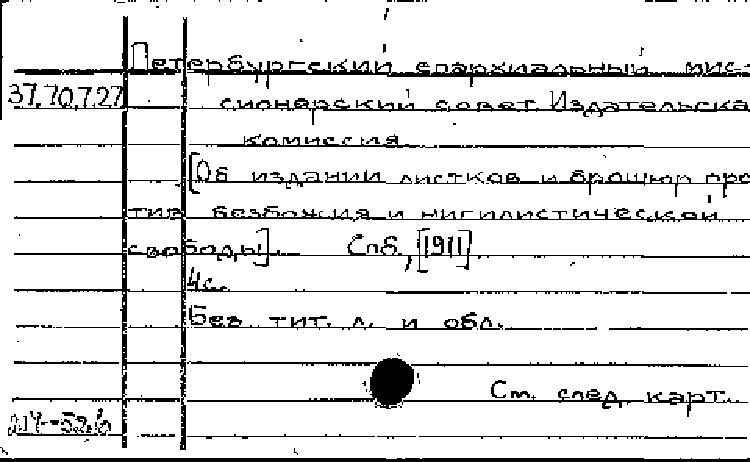 Петербургский епархиальный мис-
37.70.7.27 сионерский совет. Издательска
комиссия.
[Об издании листков и брошюр про
тив безбожия и нигилистической
свободы]. Спб., [1911]
4 с.
Без тит. л. и обл.
См. след. карт.